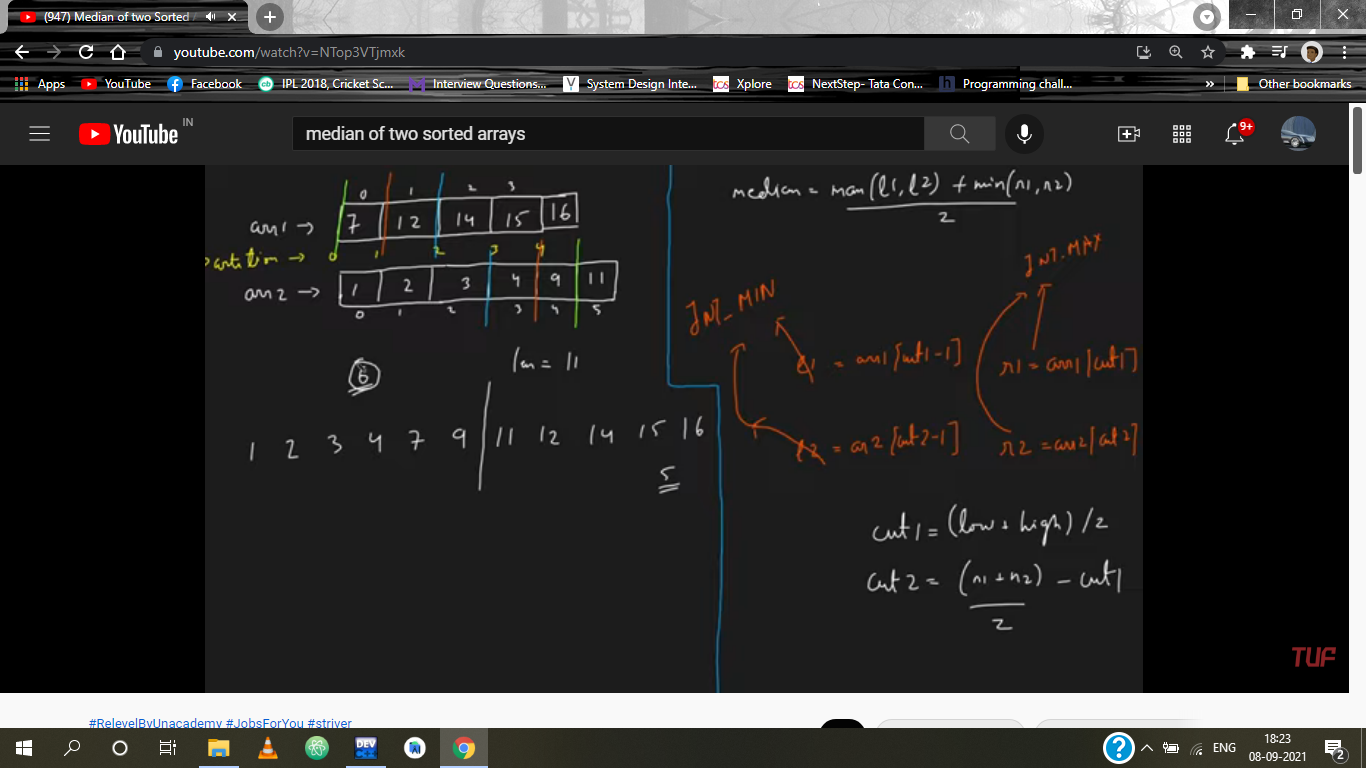 (947) Median of two Sorted
youtube.com/watch?v=NTop3VTjmxk
Apps YouTube Facebook IPL 2018, Cricket Sc... Interview Questions... System Design Inte... Xplore NextStep- Tata Con... Programming chall... » Other bookmarks
YouTube IN
median of two sorted arrays
9+
0 1 2 3
arr1 → 7 12 14 15 16
partition → 0 1 2 3 4
arr2 → 1 2 3 4 9 11
0 1 2 3 4 5
len = 11
6
1 2 3 4 7 9 11 12 14 15 16
5
median = max(l1, l2) + min(r1, r2)
2
INT_MIN
INT_MAX
l1 = arr1[cut1-1]
r1 = arr1[cut1]
l2 = arr2[cut2-1]
r2 = arr2[cut2]
cut1 = (low + high) / 2
cut2 = (n1 + n2) - cut1
2
TUF
#RelevelByUnacademy #JobsForYou #striver
DEV C++
ENG
18:23
08-09-2021
2